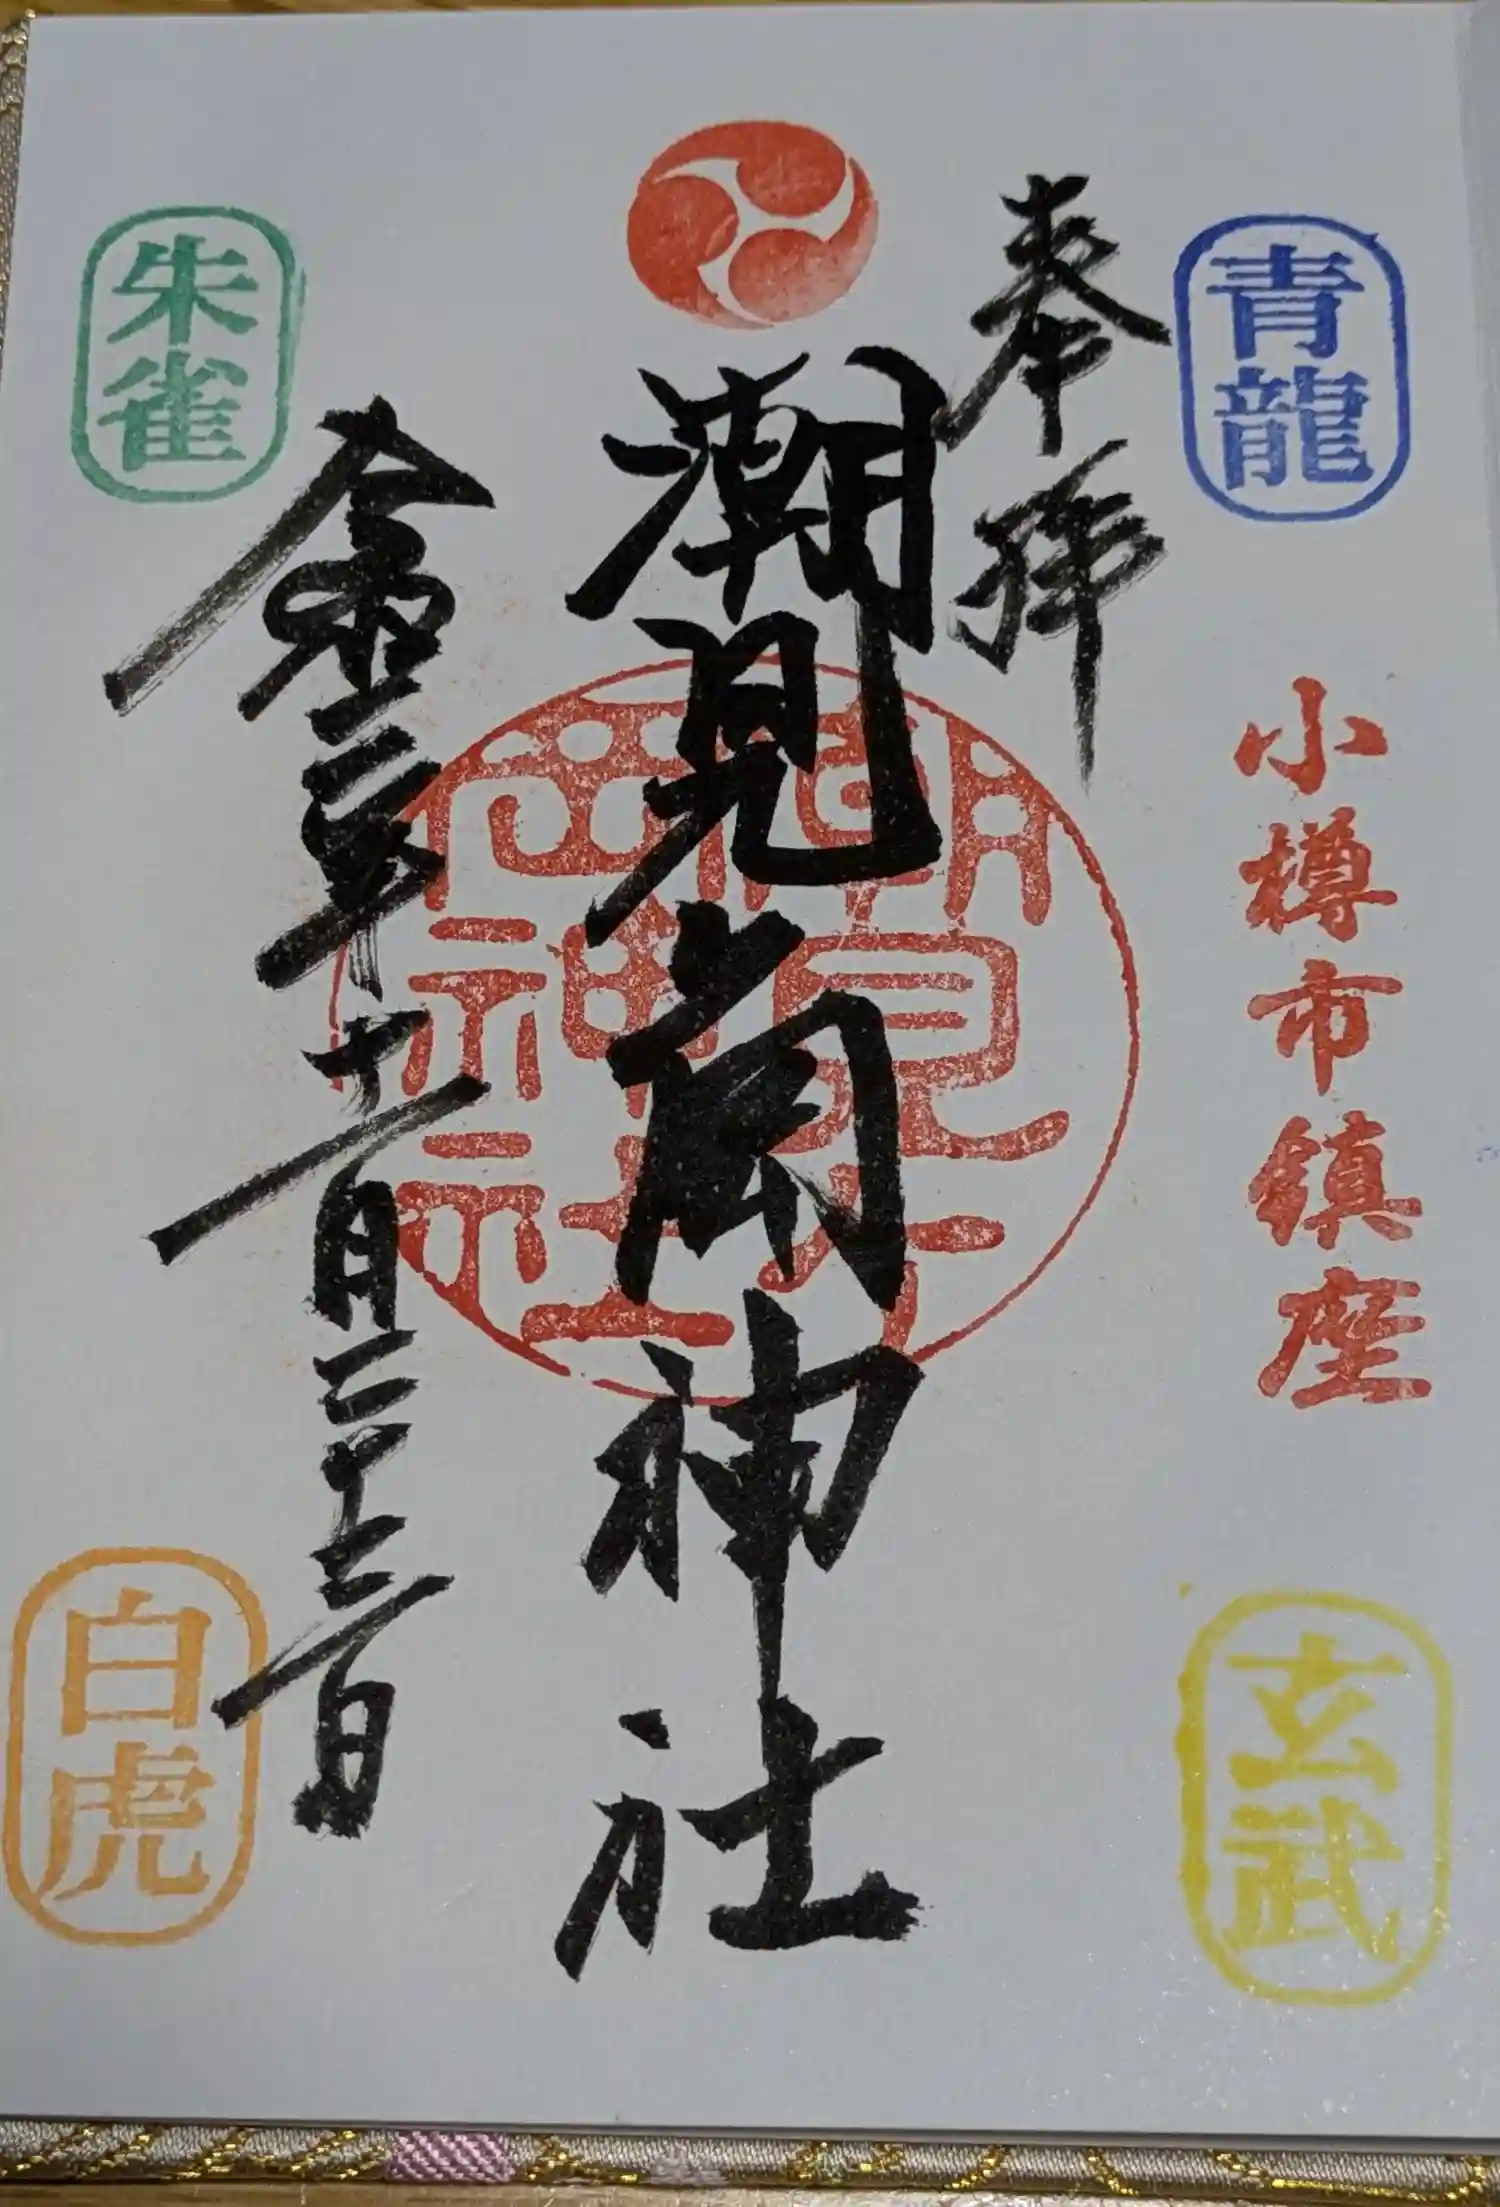 青龍
奉拝
小樽市鎮座
玄武
潮見ケ岡神社
潮見ケ岡神社
朱雀
令和三年十一月二十三日
白虎